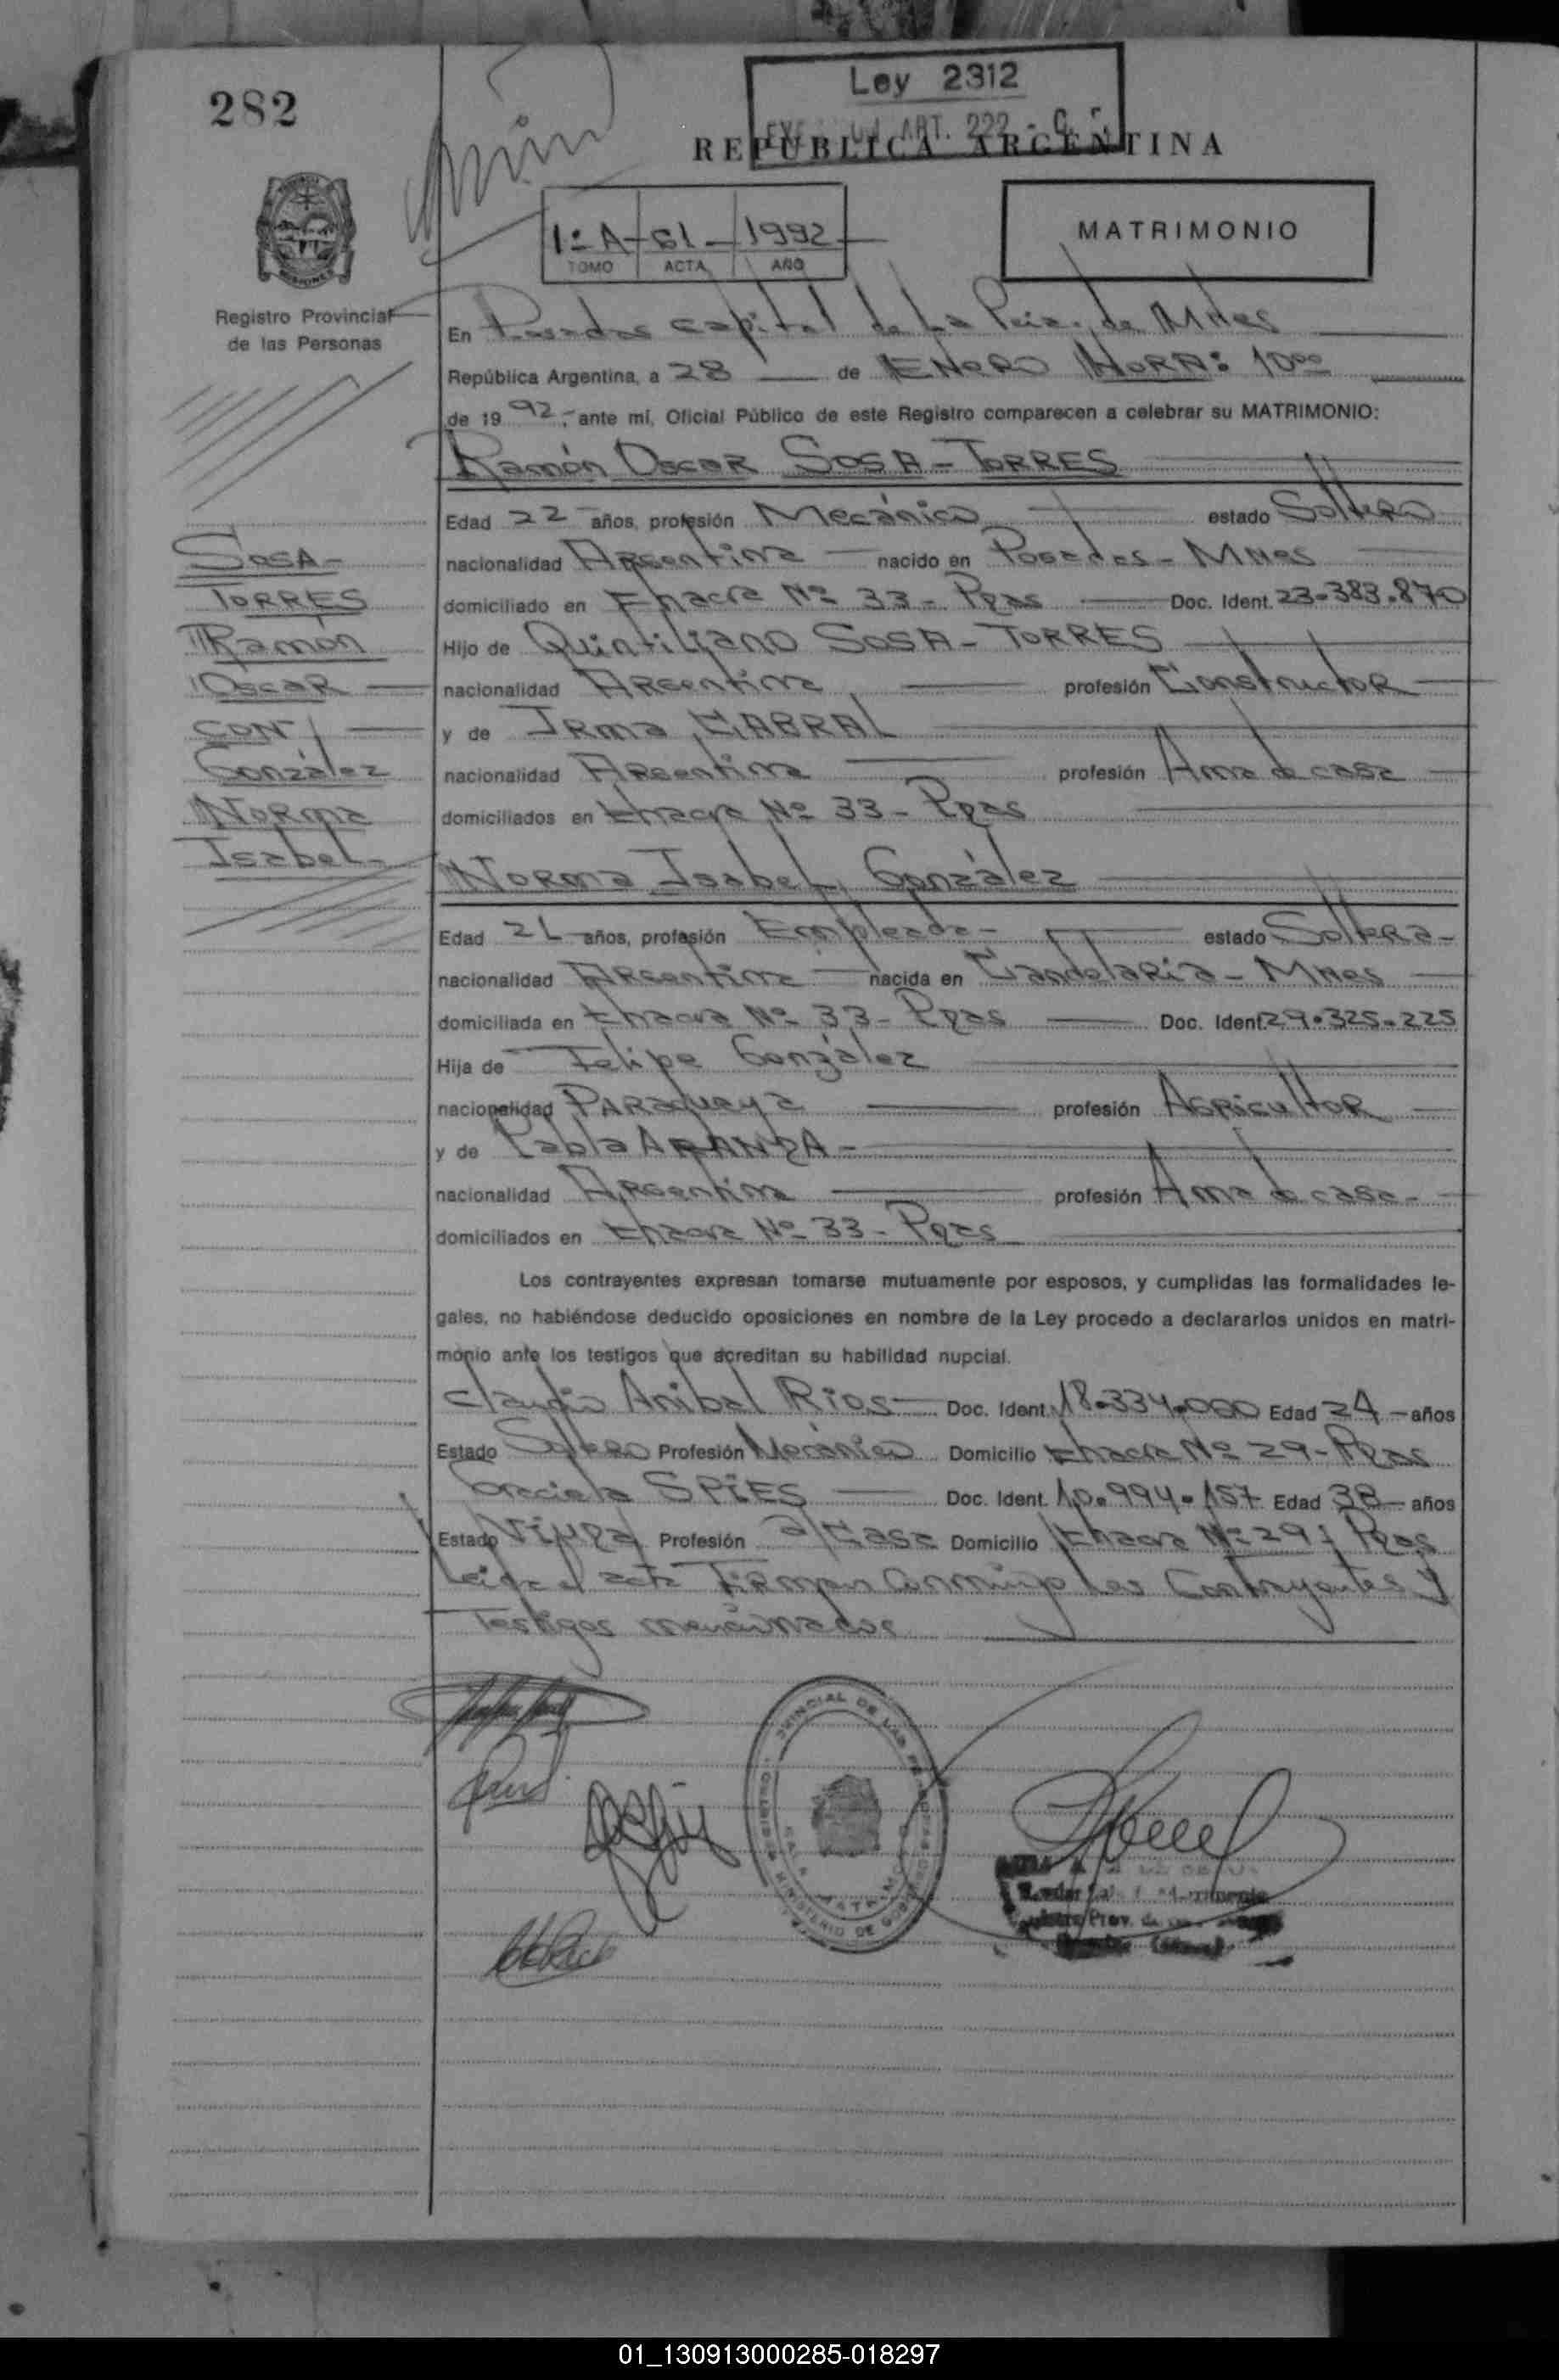 282
Ley 2312
ART. 222 - C.
REPUBLICA ARGENTINA
1º A - 61 - 1992
TOMO ACTA AÑO
MATRIMONIO
Registro Provincial
de las Personas
En Posadas capital de La Pcia. de Mnes
República Argentina, a 28 de ENERO HORA: 10⁰⁰
de 1992, ante mí, Oficial Público de este Registro comparecen a celebrar su MATRIMONIO:
Ramón Oscar SOSA - TORRES
Edad 22 años, profesión Mecánico estado Soltero
nacionalidad Argentina nacido en Posadas - Mnes
domiciliado en Chacra Nº 33 - Pdas Doc. Ident. 23.383.870
Hijo de Quintiliano SOSA - TORRES
nacionalidad Argentina profesión Constructor
y de Irma CABRAL
nacionalidad Argentina profesión Ama de casa
domiciliados en Chacra Nº 33 - Pdas
SOSA -
TORRES
Ramón
Oscar
CON
González
Norma
Isabel
Norma Isabel González
Edad 21 años, profesión Empleada - estado Soltera -
nacionalidad Argentina nacida en Candelaria - Mnes
domiciliada en Chacra Nº 33 - Pdas Doc. Ident. 29.325.225
Hija de Felipe González
nacionalidad Paraguaya profesión Agricultor
y de Pabla
nacionalidad Argentina profesión Ama de casa -
domiciliados en Chacra Nº 33 - Pdas
Los contrayentes expresan tomarse mutuamente por esposos, y cumplidas las formalidades le-
gales, no habiéndose deducido oposiciones en nombre de la Ley procedo a declararlos unidos en matri-
monio ante los testigos que acreditan su habilidad nupcial.
Claudio Anibal Rios Doc. Ident. 18.334.060 Edad 24 años
Estado Soltero Profesión Mecánico Domicilio Chacra Nº 29 - Pdas
Graciela SPIES Doc. Ident. 10.994.157 Edad 38 años
Estado Viuda Profesión a/casa Domicilio Chacra Nº 29 Pdas
Leida el acta Firman Conmigo los Contrayentes y
Testigos mencionados
MINISTERIO DE GOBIERNO
01_130913000285-018297